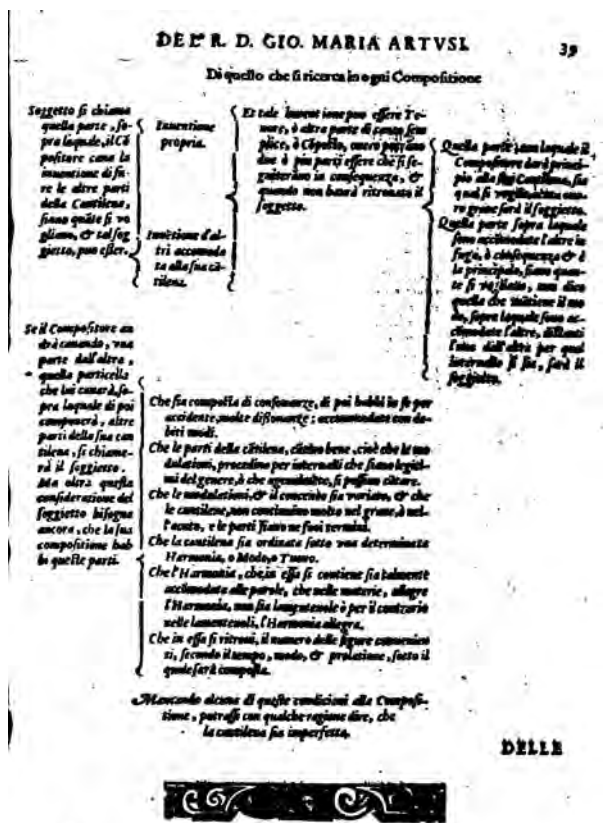 DEL R. D. GIO. MARIA ARTVSI.
39
Di quello che si ricerca in ogni Compositione
Soggetto si chiama
quella parte, so-
pra laquale, il Cō
positore caua la
inuentione di fa-
re le altre parti
della Cantilena,
siano quāte si vo
gliano, & tal sog
gietto, può esser.
Inuentione
propria.
Inuētione d'al-
tri accomoda
ta alla sua cā-
tilena.
Et tale inuentione può essere Te-
nore, ò altra parte di canto sem
plice, ò Cōposto, ouero potrāno
due ò più parti essere che si se-
guiteranno in consequenza, &
quando non haurà ritrouato il
soggetto.
Quella parte, con laquale il
Compositore darà princi-
pio alla sua Cantilena, sia
qual si voglia, acuta oue-
ro graue sarà il soggietto.
Quella parte sopra laquale
sono accōmodate l'altre in
fuga, ò consequenza & è
la principale, siano quan-
te si vogliano, non dico
quella che mātiene il mo
do, sopra laquale sono ac-
cōmodate l'altre, distanti
l'una dall'altra per qual
interuallo si sia, sarà il
soggietto.
Se il Compositore an
drà cauando, vna
parte dall'altra,
quella particella
che lui cauarà, so-
pra laquale di poi
componerà, altre
parti della sua can
tilena, si chiame-
rà il soggietto.
Ma oltra questa
consideratione del
soggietto bisogna
ancora, che la sua
compositione hab
bi queste parti.
Che sia composta di consonanze, di poi habbi in se per
accidente, molte dissonanze; accommodate con de-
biti modi.
Che le parti della cātilena, cātino bene, cioè che le mo
dulationi, procedino per interualli che siano legiti-
mi del genere, ò che ageuolmēte, si possino cātare.
Che le modulationi, & il concento sia variato, & che
le cantilene, non continuino molto nel graue, ò nel-
l'acuto, e le parti siano ne suoi termini.
Che la cantilena sia ordinata sotto vna determinata
Harmonia, o Modo, o Tuono.
Che l'Harmonia, che in essa si contiene sia talmente
accōmodata alle parole, che nelle materie, allegre
l'Harmonia, non sia languteuole ò per il contrario
nelle lamenteuoli, l'Harmonia allegra.
Che in essa si ritroui, il numero delle figure conuenien
ti, secondo il tempo, modo, & prolatione, sotto il
quale sarà composta.
Mancando alcuna di queste conditioni alla Composi-
tione, potrassi con qualche ragione dire, che
la cantilena sia imperfetta.
DELLE